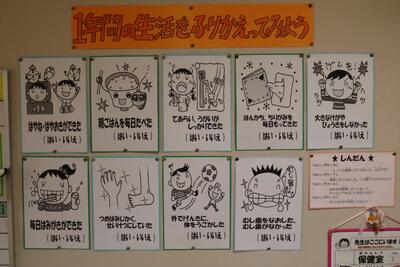 1年間の生活をふりかえってみよう
はやね・はやおきができた
(はい・いいえ)
朝ごはんを毎日たべた
(はい・いいえ)
てあらい、うがいが
しっかりできた
(はい・いいえ)
はんかち、ちりがみを
毎日もってきた
(はい・いいえ)
げんき!
大きなけがや
びょうきをしなかった
(はい・いいえ)
毎日はみがきができた
(はい・いいえ)
つめはみじかく、
せいけつにしていた
(はい・いいえ)
外でげんきに、
体をうごかした
(はい・いいえ)
むし歯をなおした、
むし歯がなかった
(はい・いいえ)
★しんだん★
先生はここにいます
保健室